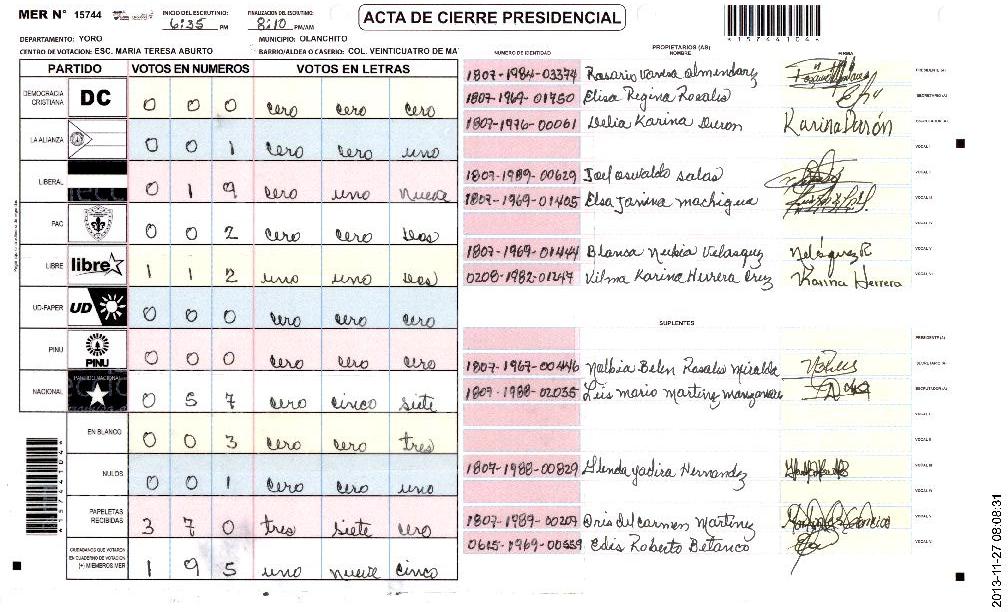 MER N° 15744
INICIO DEL ESCRUTINIO: 6:35 PM
FINALIZACION DEL ESCRUTINIO: 8:10 PM/AM
ACTA DE CIERRE PRESIDENCIAL
*15744104*
DEPARTAMENTO: YORO
MUNICIPIO: OLANCHITO
CENTRO DE VOTACION: ESC. MARIA TERESA ABURTO
BARRIO/ALDEA O CASERIO: COL. VEINTICUATRO DE MA
PARTIDO VOTOS EN NUMEROS VOTOS EN LETRAS
DEMOCRACIA CRISTIANA DC 0 0 0 cero cero cero
LA ALIANZA 0 0 1 cero cero uno
LIBERAL 0 1 9 cero uno nueve
PAC 0 0 2 cero cero dos
LIBRE libre 1 1 2 uno uno dos
UD-FAPER UD 0 0 0 cero cero cero
PINU PINU 0 0 0 cero cero cero
NACIONAL PARTIDO NACIONAL 0 5 7 cero cinco siete
EN BLANCO 0 0 3 cero cero tres
NULOS 0 0 1 cero cero uno
PAPELETAS RECIBIDAS 3 7 0 tres siete cero
CIUDADANOS QUE VOTARON EN CUADERNO DE VOTACION (+) MIEMBROS MER 1 9 5 uno nueve cinco
*15744104*
PROPIETARIOS (AS)
NUMERO DE IDENTIDAD NOMBRE FIRMA
1807-1984-03374 Rosario Vanesa Almendarez PRESIDENTE (A)
1807-1969-01750 Elisa Regina Rosales SECRETARIO (A)
1807-1976-00061 Delia Karina Duron Karina Durón ESCRUTADOR (A)
VOCAL I
1807-1989-00629 Joel oswaldo salas VOCAL II
1807-1969-01405 Elsa Janina machigua VOCAL III
VOCAL IV
1807-1969-01444 Blanca Nubia Velasquez Velásquez R VOCAL V
0208-1982-01247 Vilma Karina Herrera Cruz Karina Herrera VOCAL VI
SUPLENTES
PRESIDENTE (A)
1807-1967-00446 Belen Rosales Miralda SECRETARIO (A)
1807-1988-02035 Luis mario martinez ESCRUTADOR (A)
VOCAL I
VOCAL II
1807-1988-00829 Glenda yadira Hernandez VOCAL III
VOCAL IV
1807-1989-00207 Oris del carmen Martinez VOCAL V
0615-1969-00559 Edis Roberto Betanco VOCAL VI
2013-11-27 08:08:31